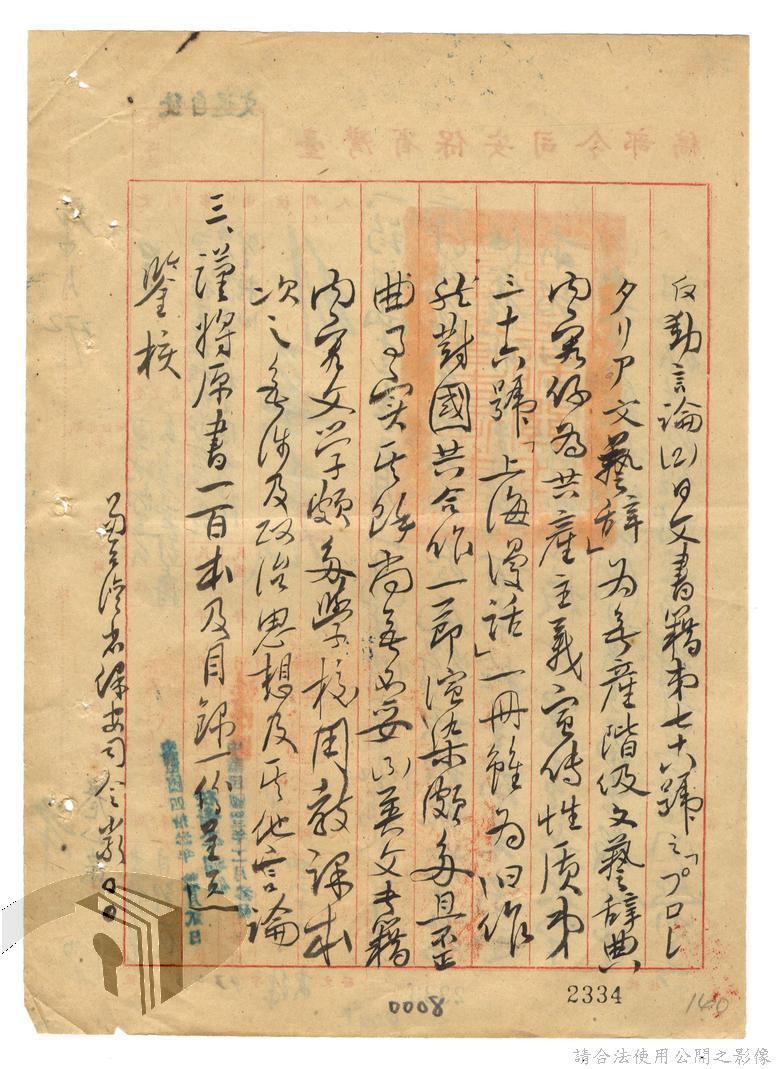 反動言論(2)日文書籍第七十六號之「プロレ
タリア文藝辞」为無產階級文藝辞典
內容係為共產主義宣传性质第
三十六號「上海漫話」一冊雖为旧作
然對國共合作一節渲染頗多且歪
曲事实其餘尚無不妥(3)英文书籍
內容文学頗多學校用教課本
次之無涉及政治思想及其他言論
三、謹將原書一百本及目錄一份呈
鑒核
省保安司令
2334
8000
140
臺灣省保安司令部稿
請合法使用公開之影像